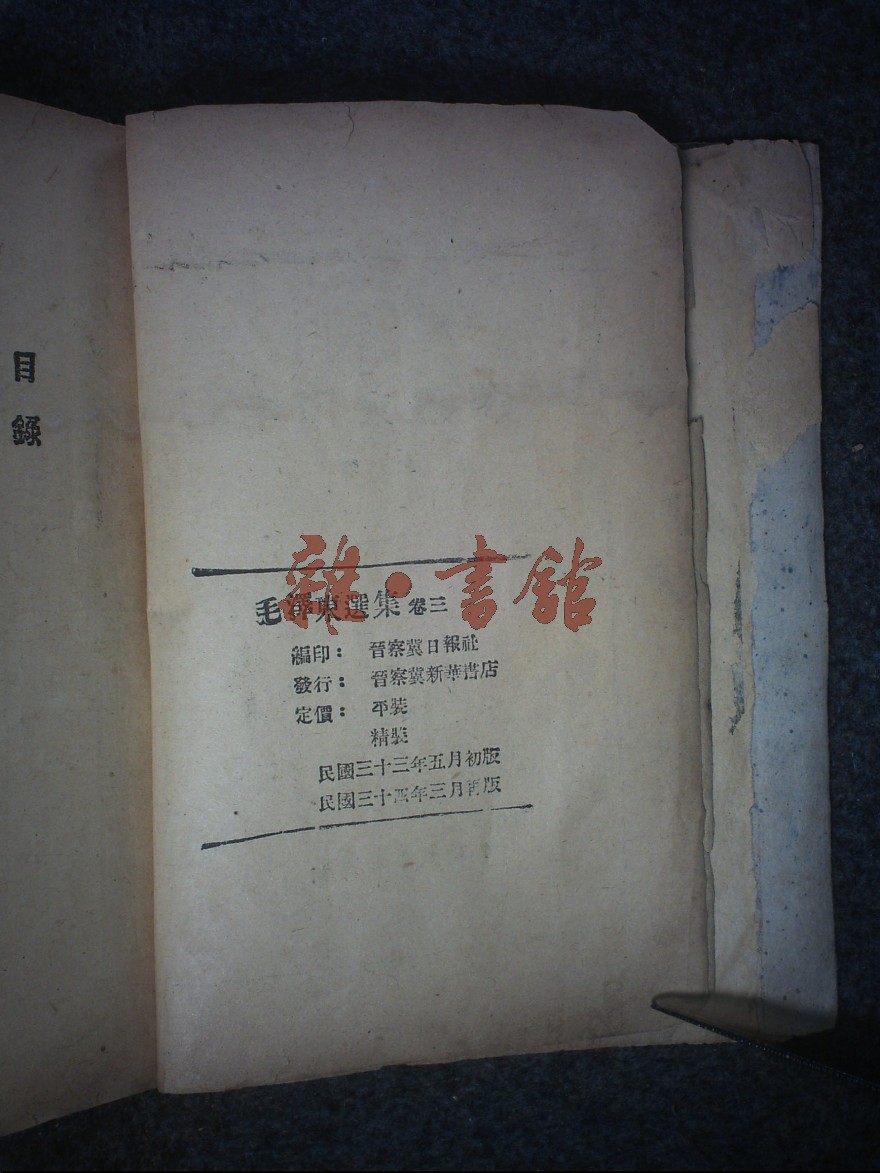 目錄
雜·書館
毛澤東選集 卷三
編印： 晉察冀日報社
發行： 晉察冀新華書店
定價： 平裝
精裝
民國三十三年五月初版
民國三十四年三月再版